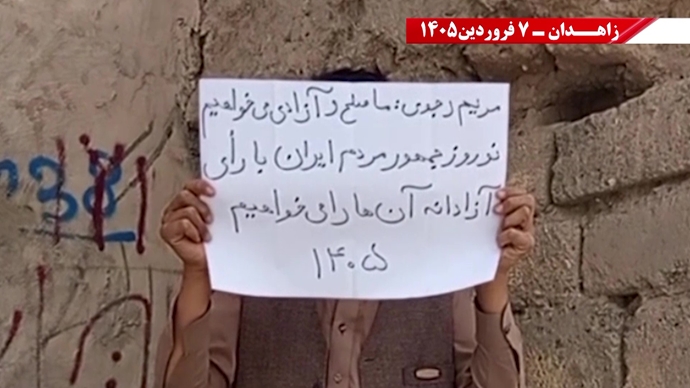 زاهـدان ــ ۷ فروردین۱۴۰۵
مریم رجوی: ما صلح و آزادی می خواهیم
نوروز جمهور مردم ایران با رأی
آزادانه آن ها را می خواهیم
۱۴۰۵
38